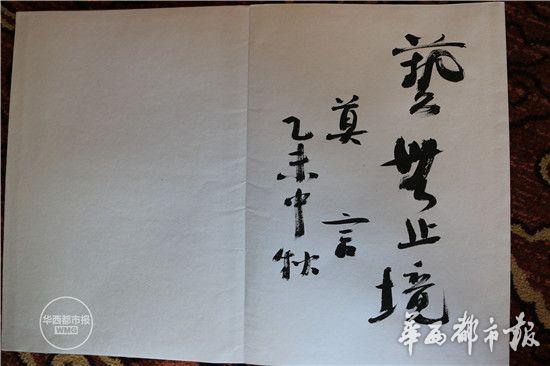 藝無止境
莫言
乙未中秋
华西都市报
WMG
华西都市报